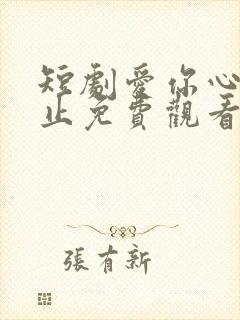 短劇愛你心
止免費觀看
張有新